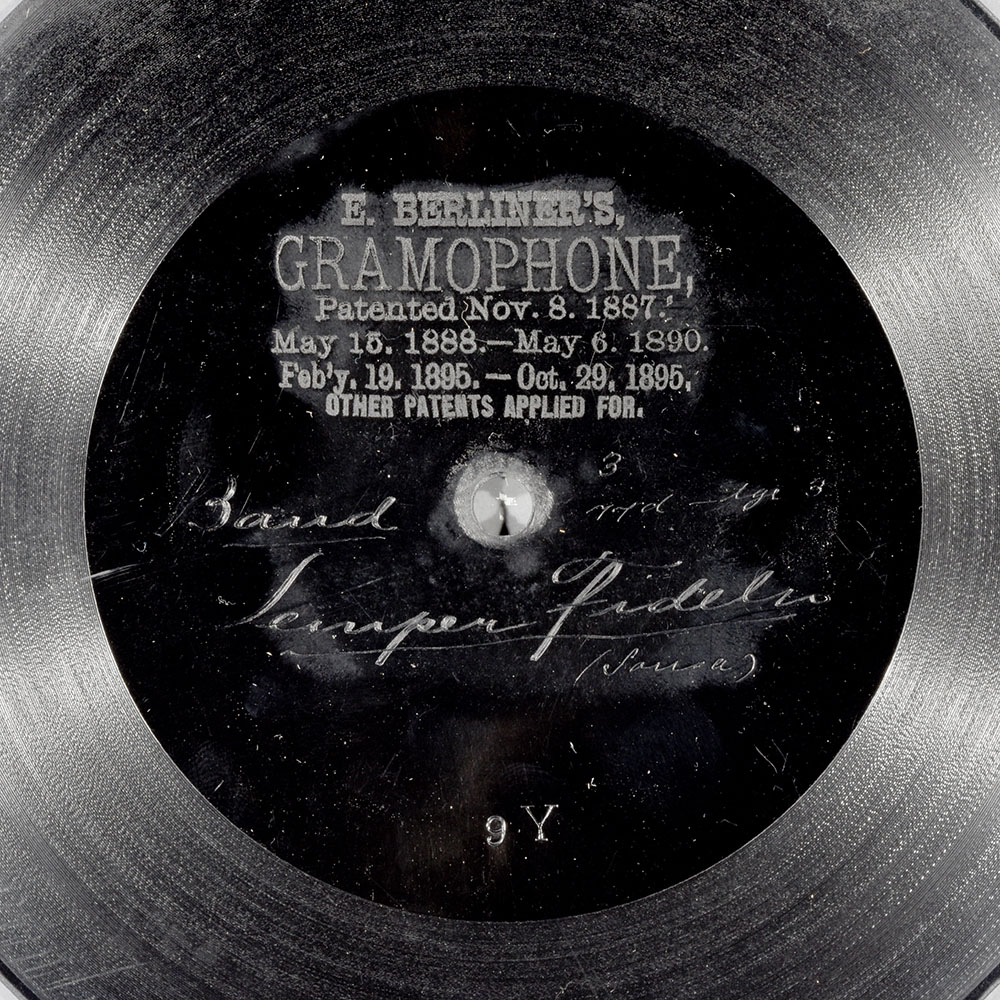 E. BERLINER'S,
GRAMOPHONE,
Patented Nov. 8. 1887.
May 15. 1888.—May 6. 1890.
Feb'y. 19. 1895.—Oct. 29. 1895.
OTHER PATENTS APPLIED FOR.
3
Band
3
Semper Fidelis
(Sousa)
9 Y